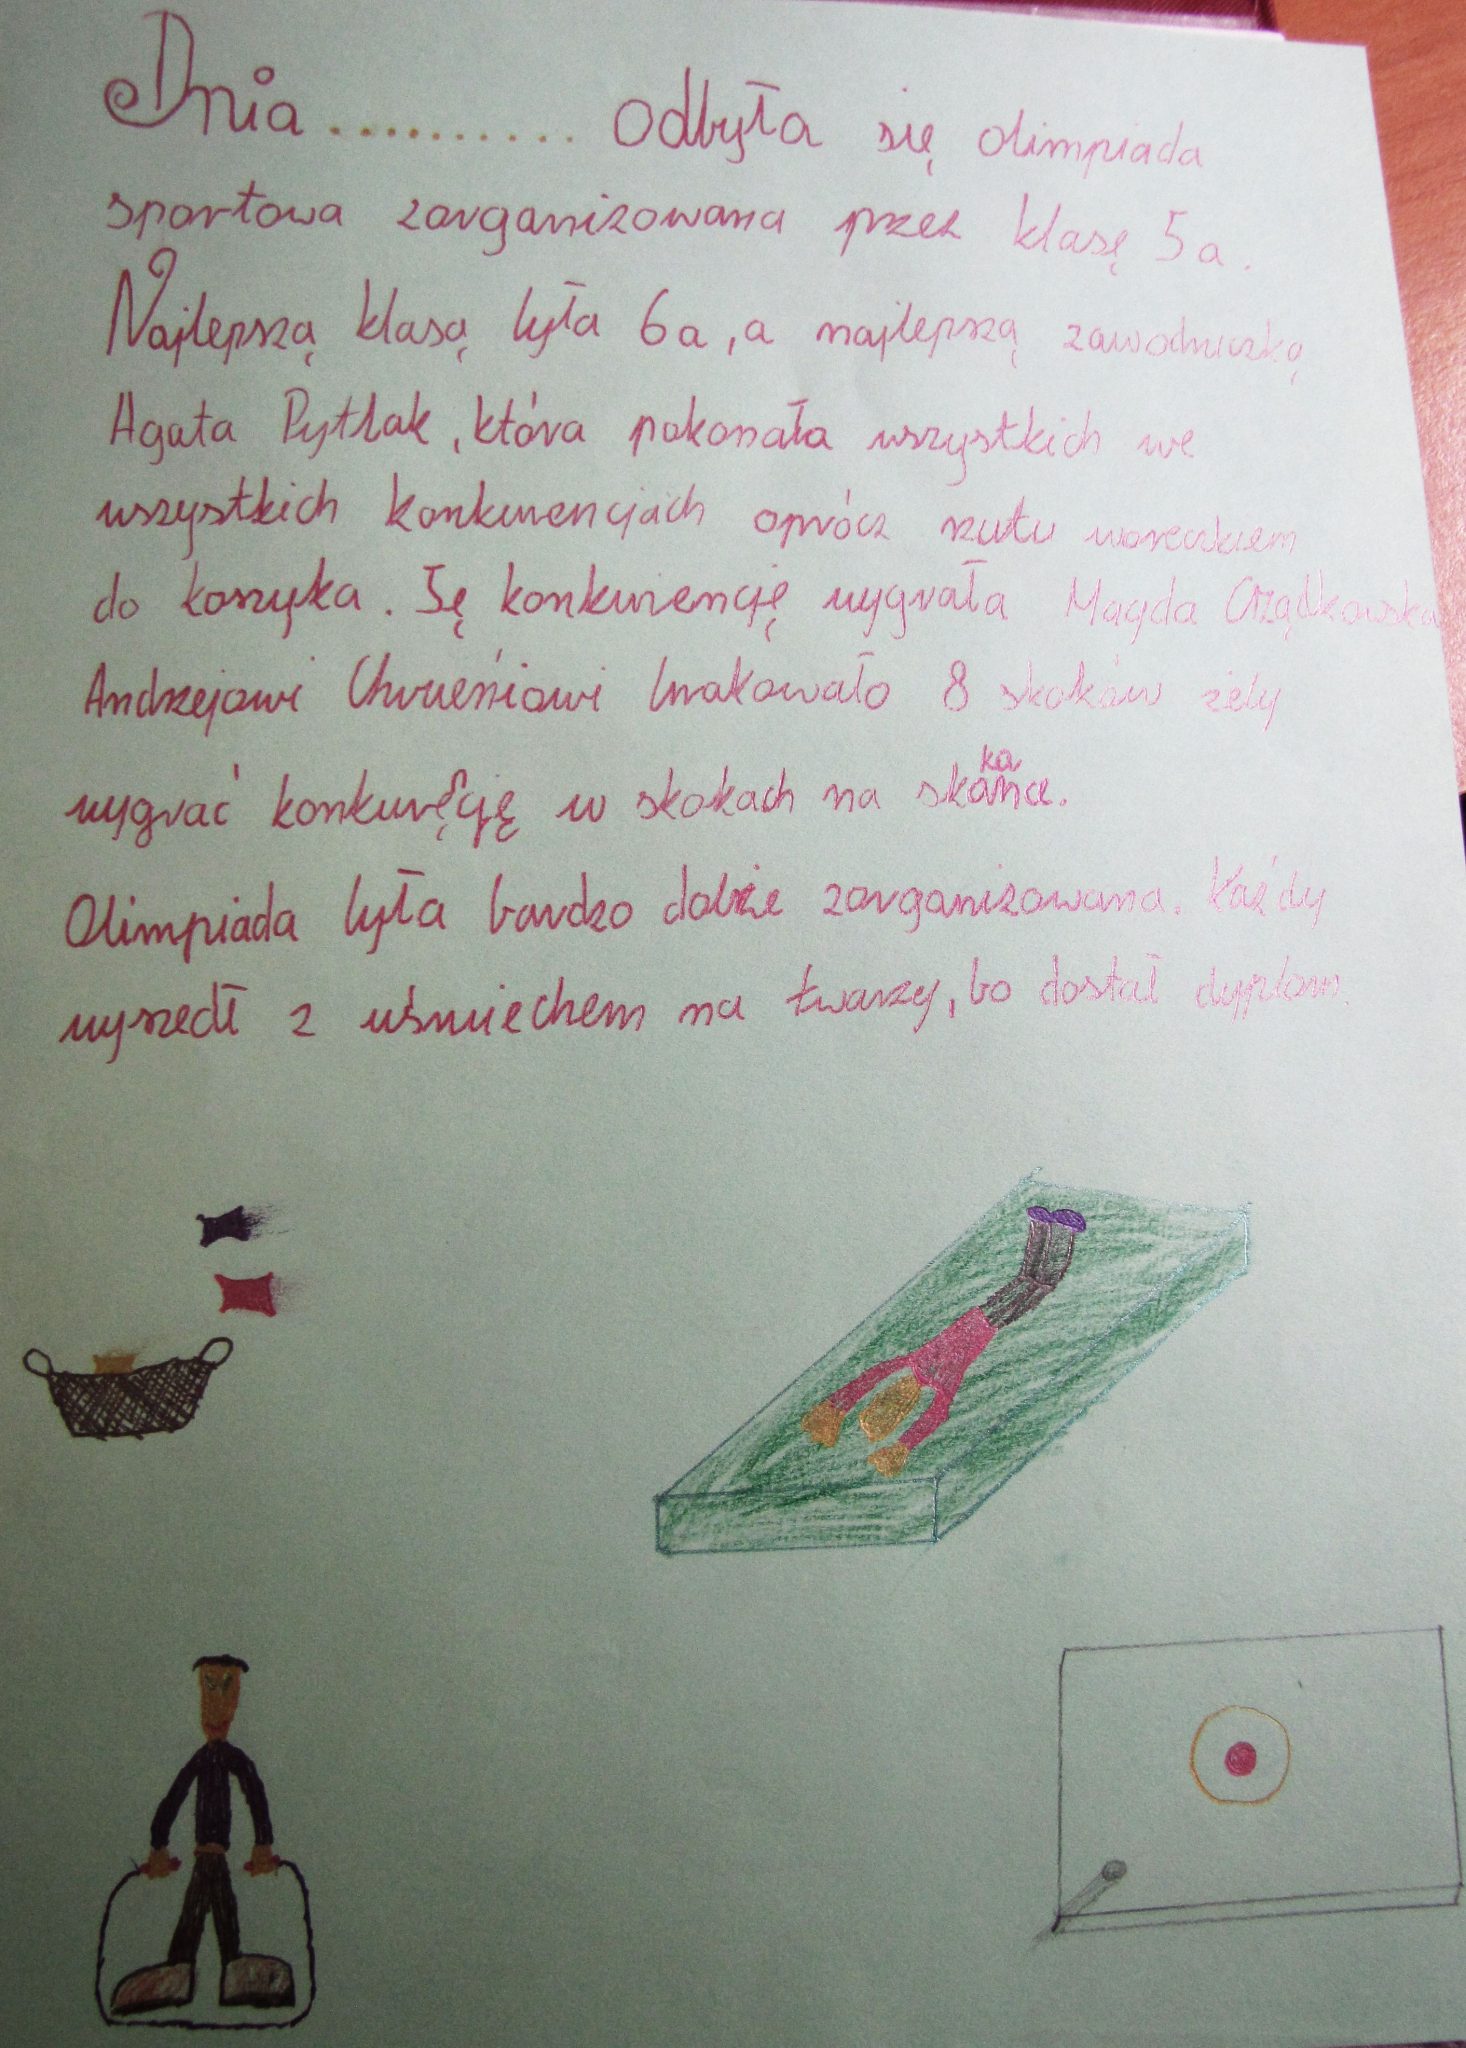 Dnia .......... odbyła się olimpiada
sportowa zorganizowana przez klasę 5a.
Najlepszą klasą była 6a, a najlepszą zawodniczką
Agata Pytlak, która pokonała wszystkich we
wszystkich konkurencjach oprócz rzutu woreczkiem
do koszyka. Tę konkurencję wygrała Magda
Andrzejowi brakowało 8 skoków żeby
wygrać konkuręcję w skokach na skakana.
Olimpiada była bardzo dobrze zorganizowana. Każdy
wyszedł z uśmiechem na twarzy, bo dostał dyplom.